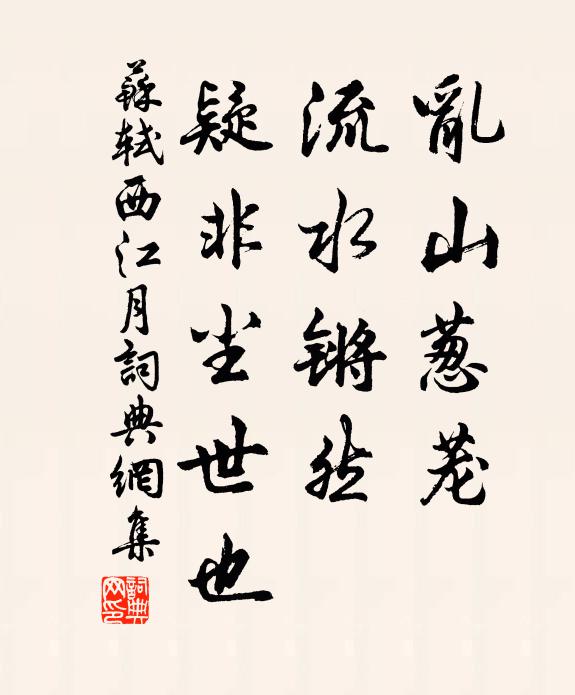 亂山葱茏
流水锵然
疑非尘世也
蘇轼西江月詞典網集
詞典
网印